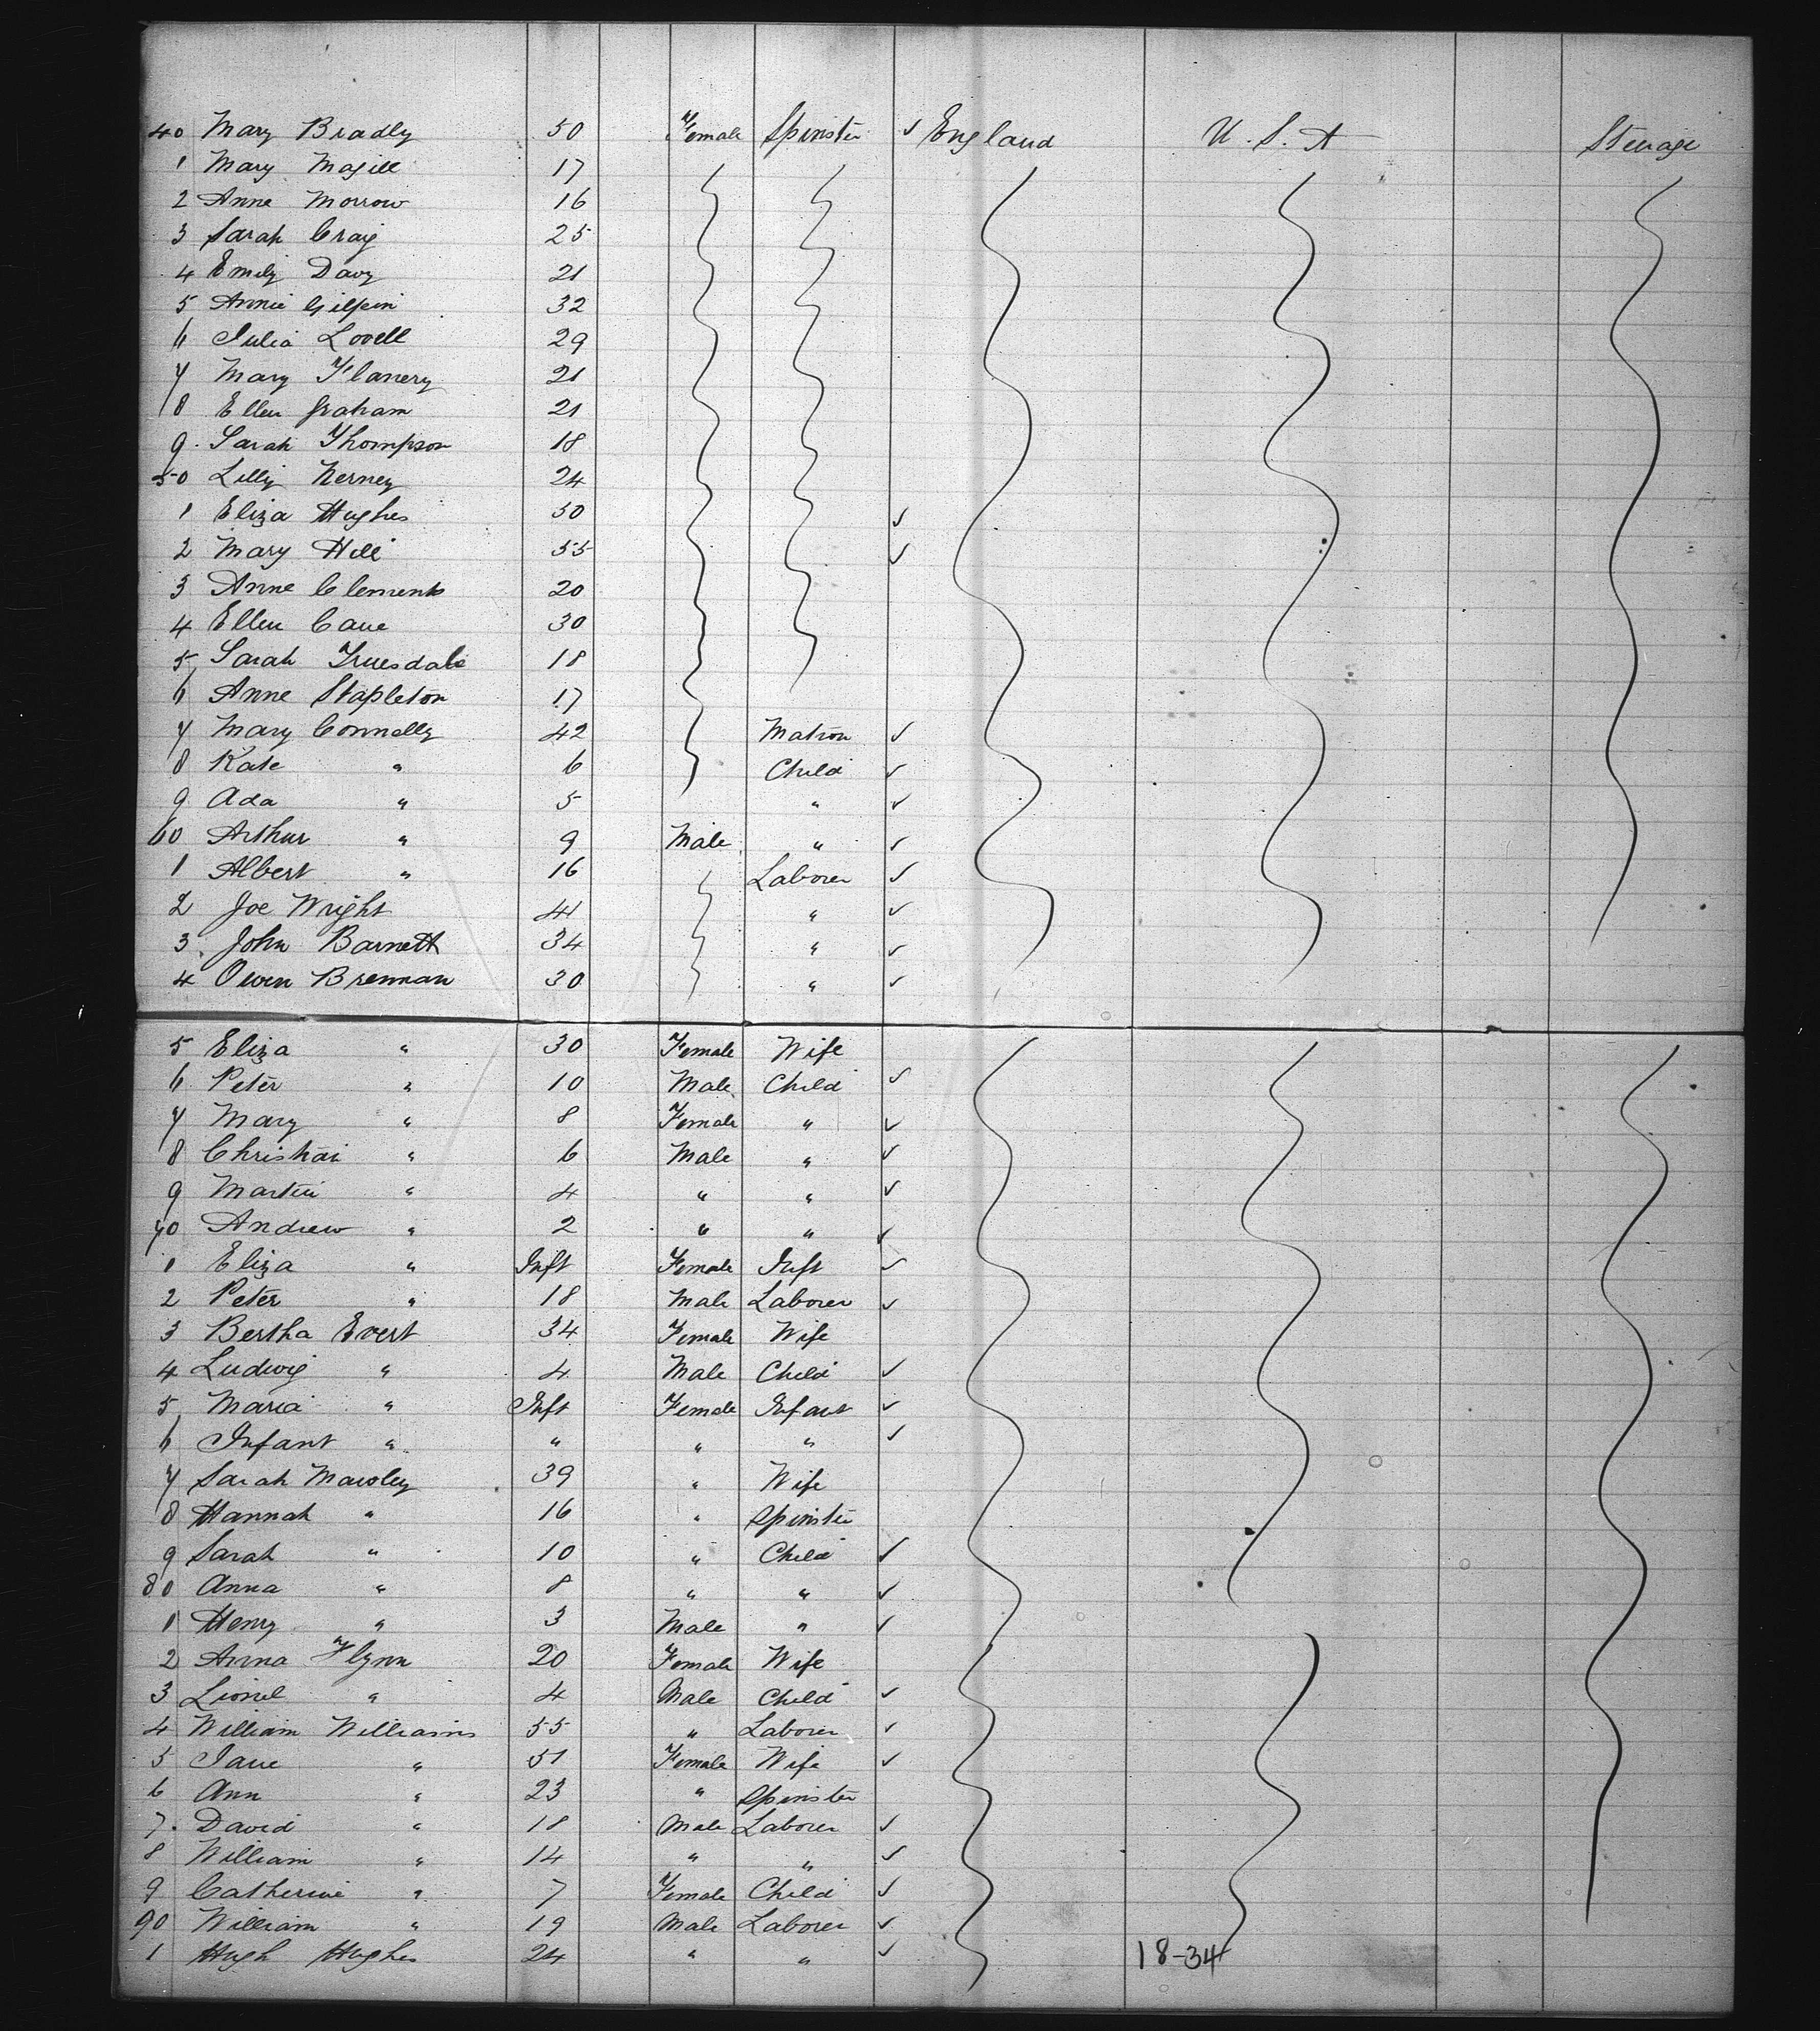 40 Mary Bradly 50 Female Spinster ✓ England U. S. A Steerage
1 Mary Magill 17
2 Anne Morrow 16
3 Sarah Craig 25
4 Emily Davy 21
5 Annie Gilpin 32
6 Julia Lovell 29
7 Mary Flanery 21
8 Ellen Graham 21
9 Sarah Thompson 18
50 Lilly Nerney 24
1 Eliza Hughes 50 ✓
2 Mary Hill 55 ✓
3 Anne Clements 20
4 Ellen Cave 30
5 Sarah Truesdale 18
6 Anne Stapleton 17
7 Mary Connelly 42 Matron ✓
8 Kate " 6 Child ✓
9 Ada " 5 " ✓
60 Arthur " 9 Male " ✓
1 Albert " 16 Laborer ✓
2 Joe Wright 41 " ✓
3 John Barnett 34 " ✓
4 Owen Brennan 30 " ✓
5 Eliza " 30 Female Wife
6 Peter " 10 Male Child ✓
7 Mary " 8 Female " ✓
8 Christian " 6 Male " ✓
9 Martin " 4 " " ✓
70 Andrew " 2 " " ✓
1 Eliza " Inft Female Inft ✓
2 Peter " 18 Male Laborer ✓
3 Bertha Evert 34 Female Wife
4 Ludwig " 4 Male Child ✓
5 Maria " Inft Female Infant ✓
6 Infant " " " " ✓
7 Sarah Mawley 39 " Wife
8 Hannah " 16 " Spinster
9 Sarah " 10 " Child ✓
80 Anna " 8 " " ✓
1 Henry " 3 Male " ✓
2 Anna Flynn 20 Female Wife
3 Lionel " 4 Male Child ✓
4 William Williams 55 " Laborer ✓
5 Jane " 51 Female Wife ✓
6 Ann " 23 " Spinster
7 David " 18 Male Laborer ✓
8 William " 14 " " ✓
9 Catherine " 7 Female Child ✓
90 William " 19 Male Laborer ✓
1 Hugh Hughes 24 " " ✓ 18-34